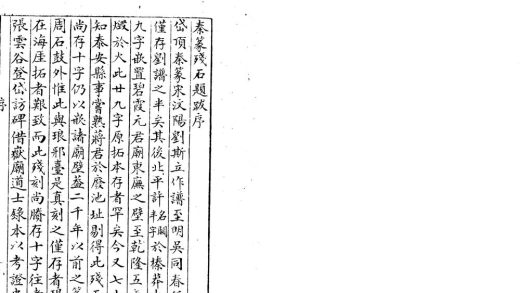 秦篆殘石題跋序
岱頂秦篆宋汶陽劉斯立作譜至明吳同春
僅存劉譜之半矣其後北平許名闕半字於榛莽
九字嵌置碧霞元君廟東廡之壁至乾隆五
燬於火此廿九字原拓本存者罕矣今又七
知泰安縣事嘗熟蔣君於廢池址剔得此殘石
尚存十字仍以嵌諸廟壁蓋二千年以前之篆
周石鼓外惟此與琅邪臺是真刻之僅存者
在海厓拓者艱致而此殘刻尚賸存十字往
張雲谷登岱訪碑借嶽廟道士錄本以考證
序